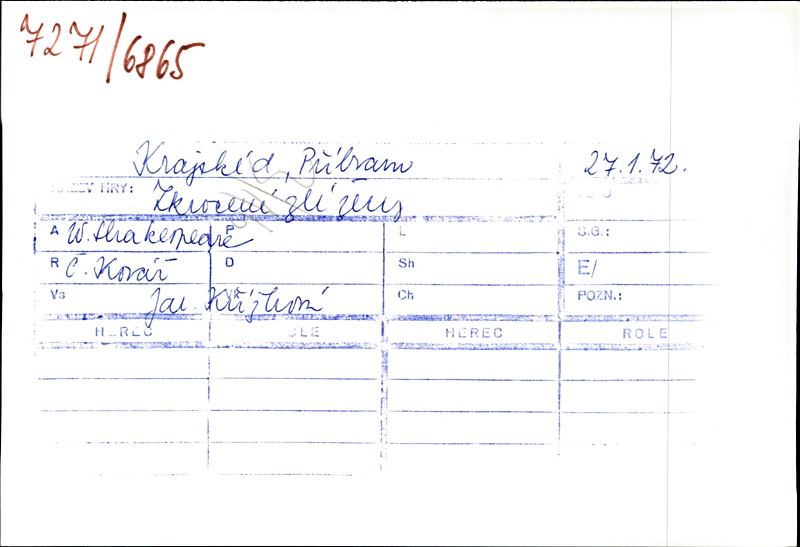 7271/6865
Krajské d., Příbram 27.1.72.
NÁZEV HRY: Zkrocení zlé ženy
A W. Shakespeare P L S.G.:
R Č. Kovář D Sh E/
Vs Jar. Křížková Ch POZN.:
HEREC ROLE HEREC ROLE